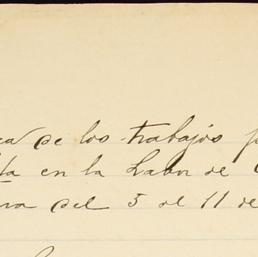 de los trabajos
en la Labor de
del 5 al 11 de